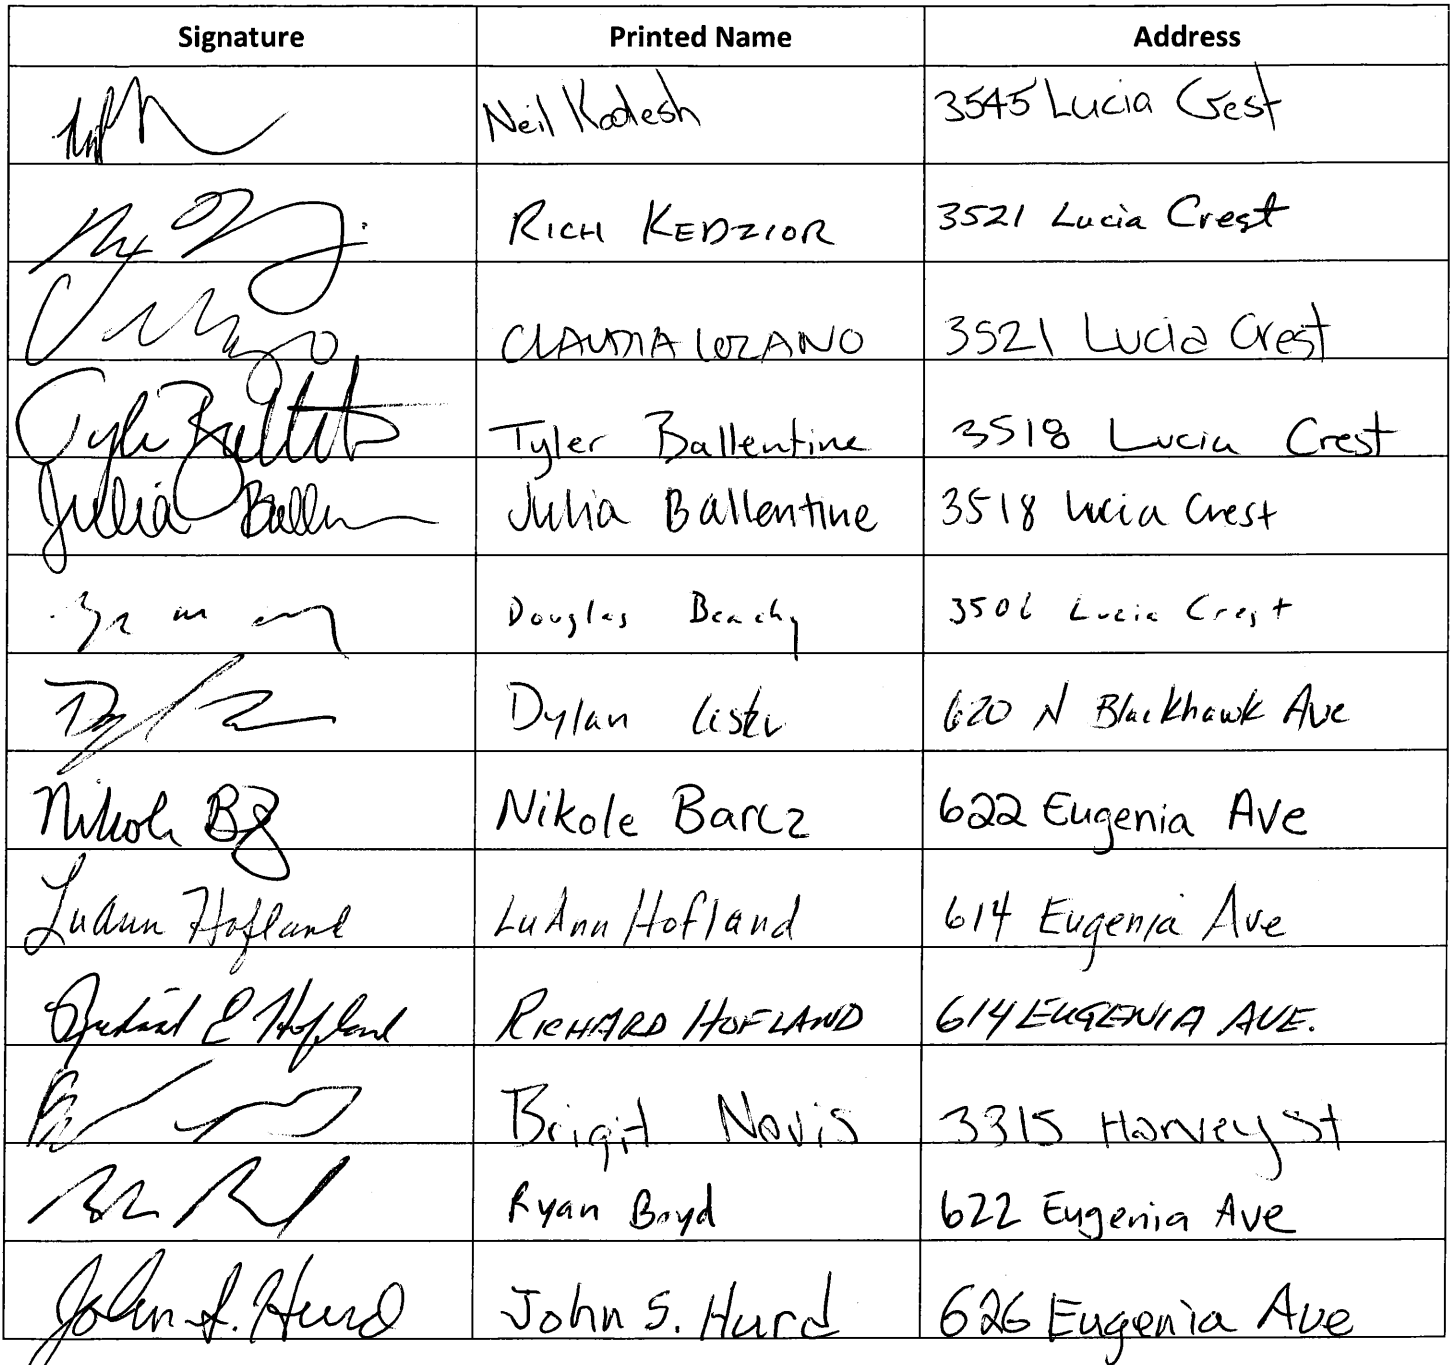 Signature Printed Name Address
Neil Kodesh 3545 Lucia Crest
RICH KEDZIOR 3521 Lucia Crest
CLAUDIA LOZANO 3521 Lucia Crest
Tyler Ballentine 3518 Lucia Crest
Julia Ball Julia Ballentine 3518 Lucia Crest
Douglas Beachy 3506 Lucia Crest
Dylan Lister 620 N Blackhawk Ave
Nikole Nikole Barcz 622 Eugenia Ave
LuAnn Hofland LuAnn Hofland 614 Eugenia Ave
Richard E Hofland RICHARD HOFLAND 614 EUGENIA AVE.
Brigit Novis 3315 Harvey St
Ryan Boyd 622 Eugenia Ave
John S. Hurd John S. Hurd 626 Eugenia Ave